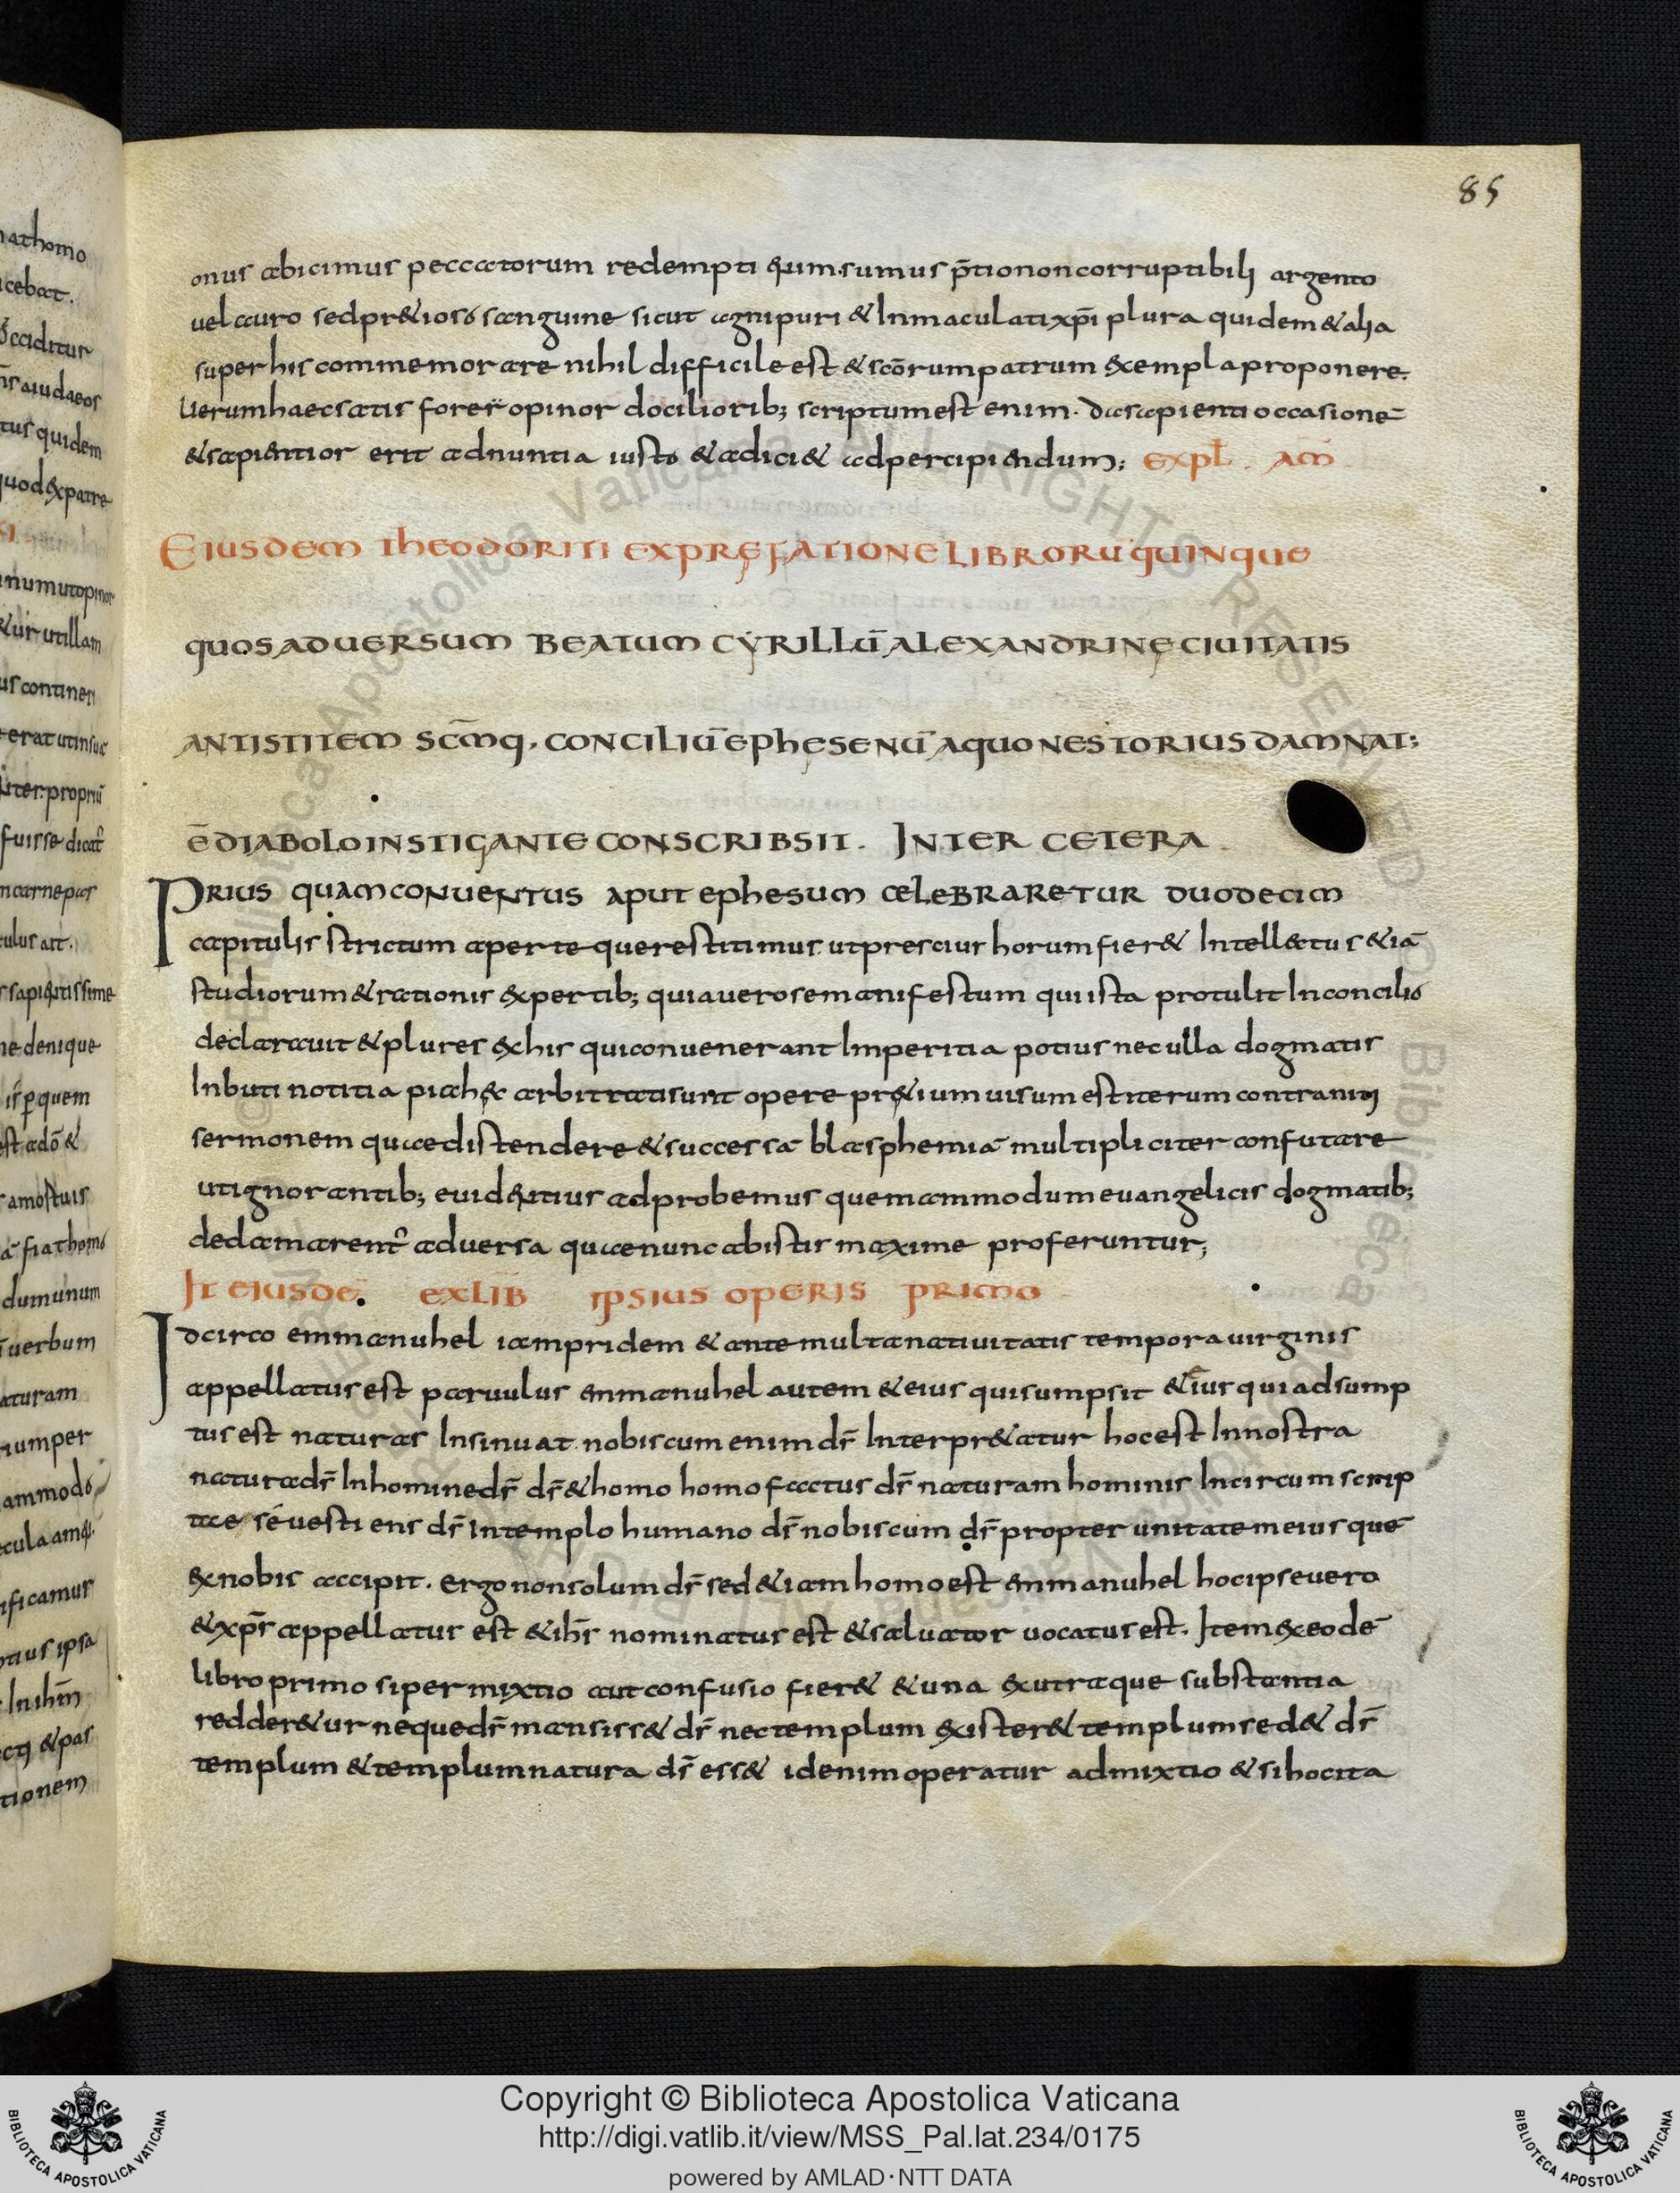 85
onus abicimus peccatorum redempti enim sumus p̄tio non corruptibili argento
vel auro sed pr&ioso sanguine sicut agni puri & Inmaculati xp̄i plura quidem & alia
super his commemorare nihil difficile est & sc̄orum patrum exempla proponere.
Uerum haec satis fore opinor docilioribus; scriptum est enim. da sapienti occasionē
& sapientior erit adnuntia iusto & adici& ad percipiendum; expl̄. am̄
EIUSDEM THEODORITI EX PREFATIONE LIBRORŪ QUINQUE
QUOS ADVERSUM BEATUM CYRILLŪ ALEXANDRINE CIVITATIS
ANTISTITEM SC̄MQ. CONCILIŪ EPHESENŪ A QUO NESTORIUS DAMNAT;
Ē DIABOLO INSTIGANTE CONSCRIBSIT. INTER CETERA.
PRIUS QUAM CONVENTUS APUT EPHESUM CELEBRARETUR DUODECIM
capitulis strictim aperte que restitimus ut prescius horum fier& Intellectus & iā
studiorum & rationis expertib; quia vero se manifestum qui ista protulit In concilio
declaravit & plures ex his qui convenerant Imperitia potius nec ulla dogmatis
Inbuti notitia piae h&c arbitrati sunt opere pr&ium visum est iterum contra
sermonem quae distendere & successā blasphemiā multipliciter confutare
ut ignorantib; evidentius adprobemus quemammodum evangelicis dogmatib;
declamarent̄ adversa quae nunc ab istis maxime proferuntur;
It eiusdē ex LIB̄ ipsius operis primo
Idcirco emmanuhel iampridem & ante multa nativitatis tempora virginis
appellatus est parvulus emmanuhel autem & eius qui sumpsit & eius qui adsump
tus est naturas Insinuat. nobiscum enim dr̄ Interpr&atur hoc est In nostra
natura dr̄ In homine dr̄ dr̄ & homo homo factus dr̄ naturam hominis Incircumscrip
tae sé vestiens dr̄ In templo humano dr̄ nobiscum dr̄ propter unitatem eius quē
ex nobis accipit. ergo non solum dr̄ sed & iam homo est emmanuhel hoc ipse vero
& xp̄s appellatus est & ih̄s nominatus est & salvator vocatus est. Item ex eodē
libro primo si permixtio aut confusio fier& & una ex utraque substantia
redder&ur neque dr̄ mansiss& dr̄ nec templum exister& templum sed & dr̄
templum & templum natura dr̄ ess& id enim operatur admixtio & si hoc ita
Copyright © Biblioteca Apostolica Vaticana
http://digi.vatlib.it/view/MSS_Pal.lat.234/0175
powered by AMLAD·NTT DATA
BIBLIOTECA APOSTOLICA VATICANA
BIBLIOTECA APOSTOLICA VATICANA